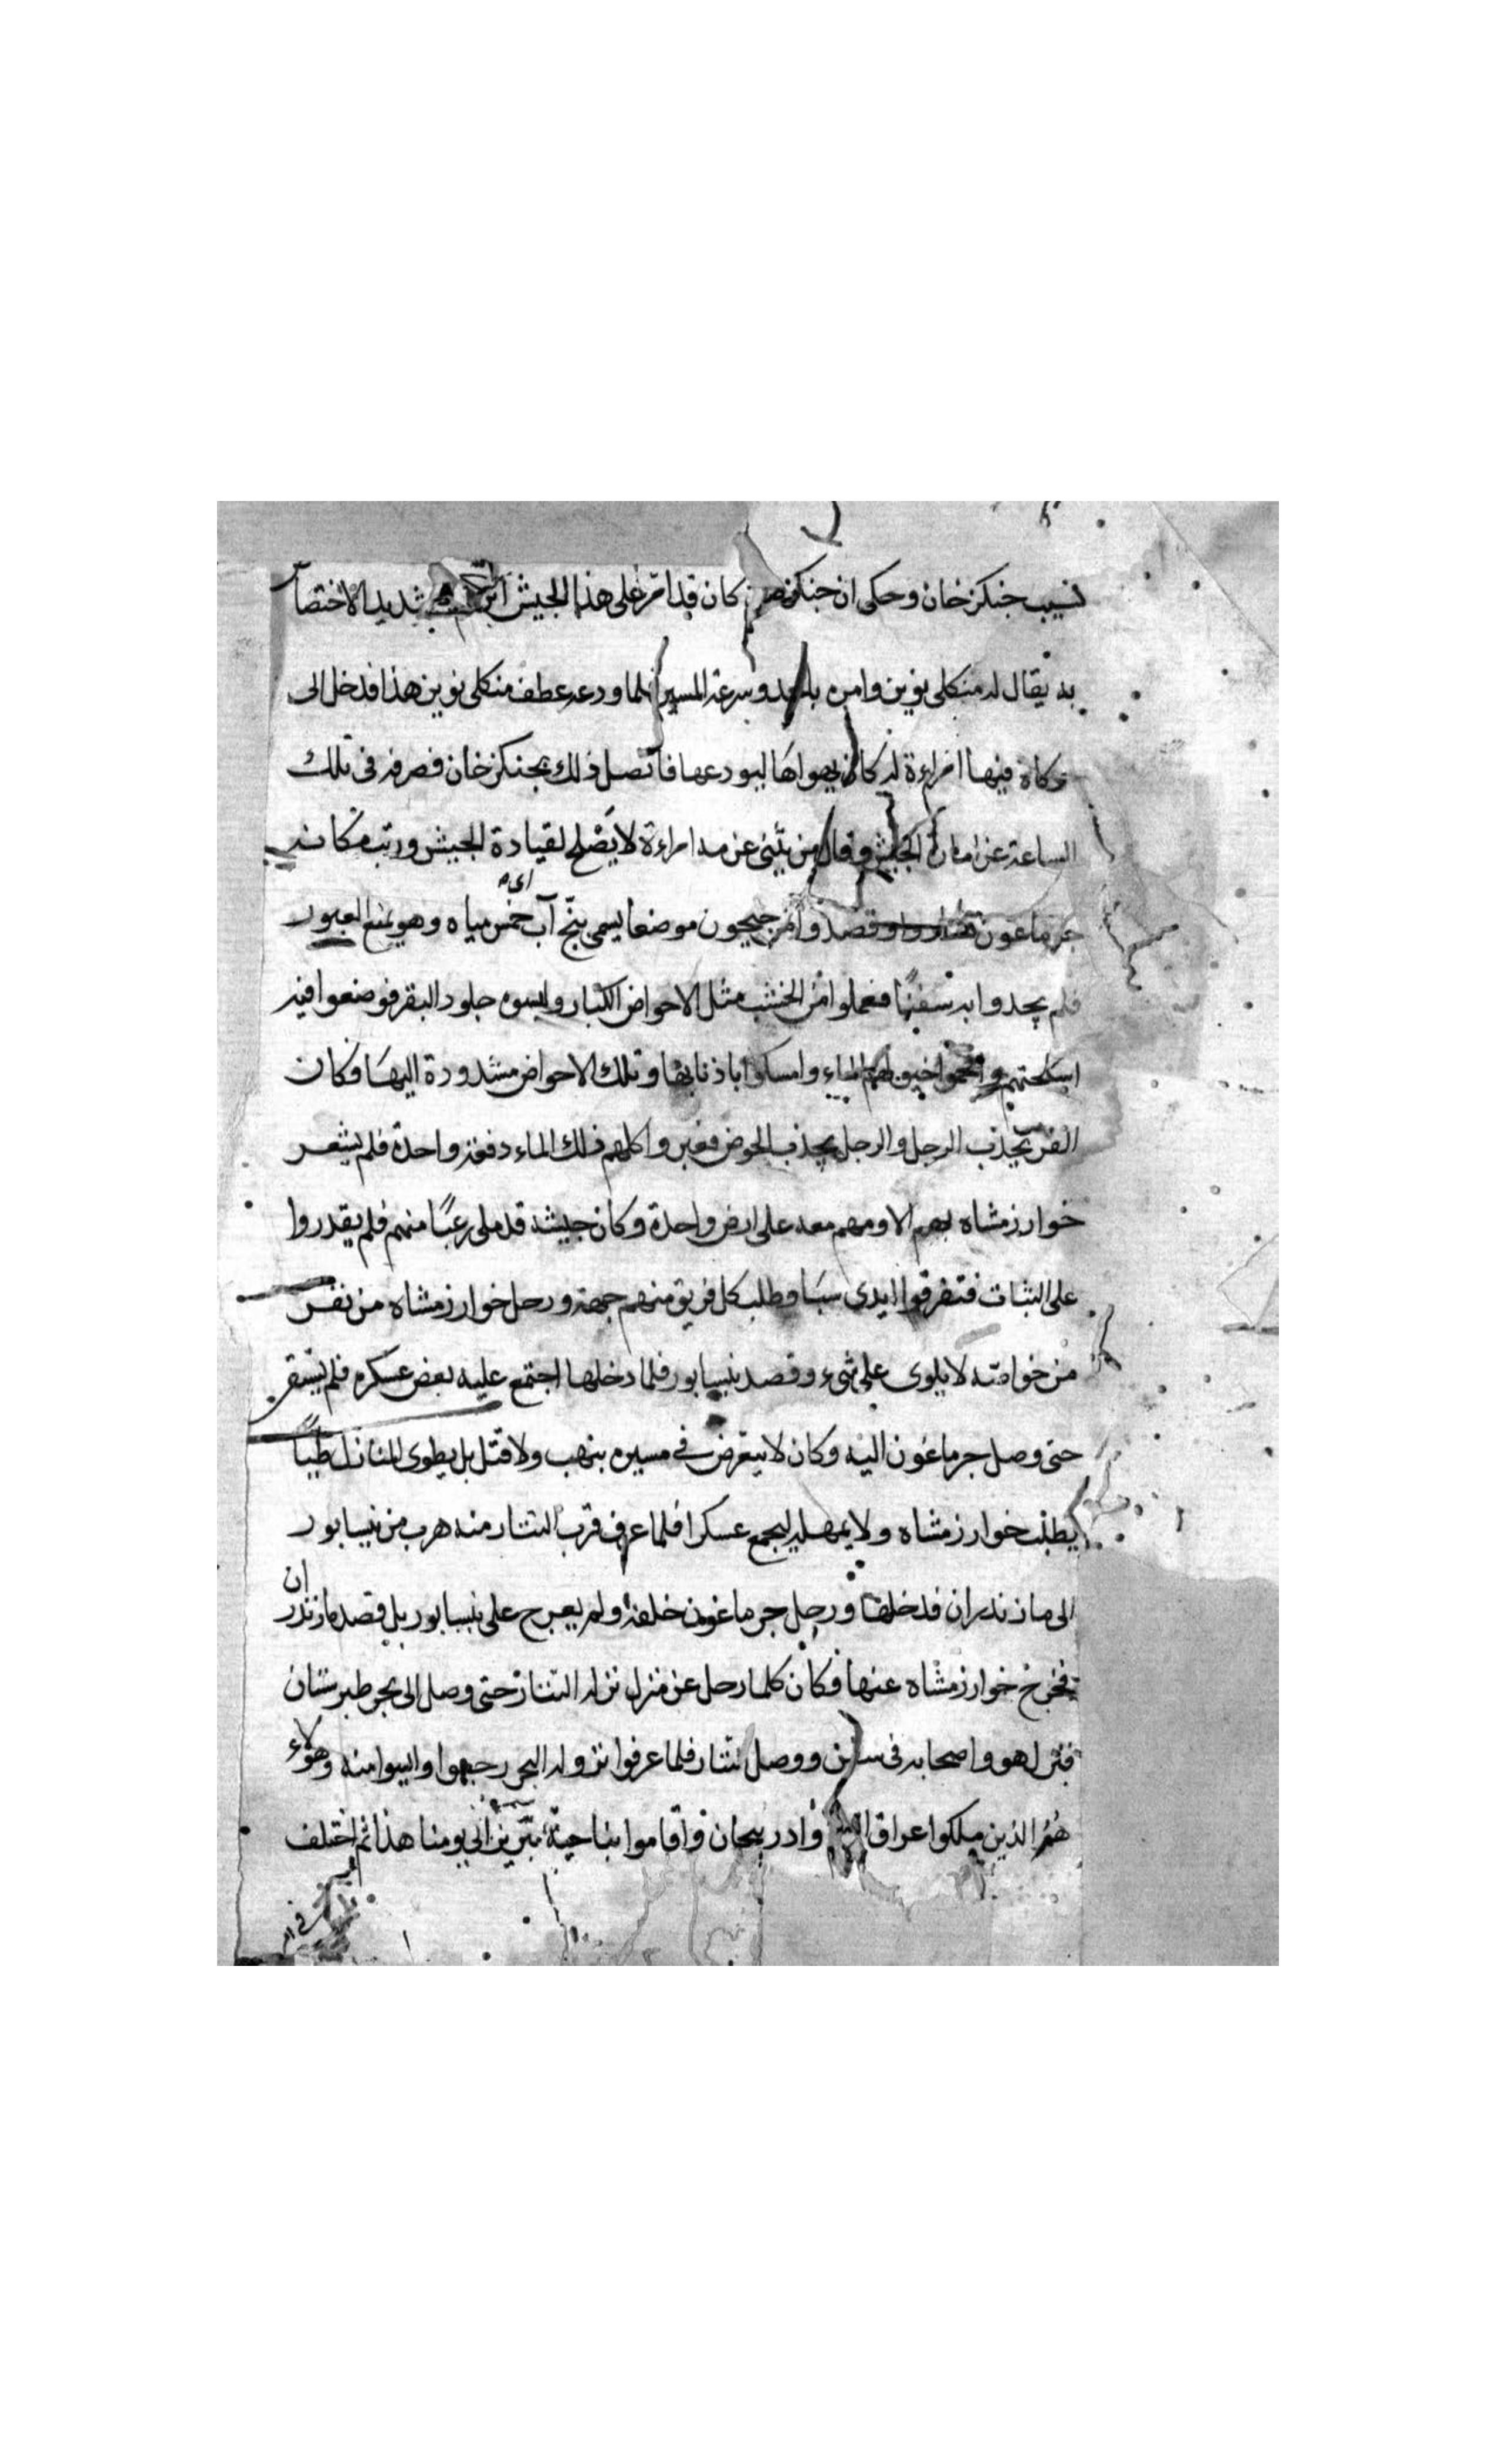 نسيب جنكزخان وحكى ان جنكزخان كان قد امّر على هذا الجيش ابن شديد الاختصاص
به يقال له منكلى نوين وامره بالجد وسرعة المسير فلما ودعه عطف منكلى نوين هذا فدخل الى
وكان فيها امراءة له كان يهواها ليودعها فاتصل ذلك بجنكزخان فصرفه فى تلك
الساعة عن امارة الجيش وقال من يثنى عزمه امراءة لا يصلح لقيادة الجيش ورتب مكانه
جرماغون فساروا وقصدوا من جيجون موضعا يسمى بنج آب اى خمس مياه وهو يمنع العبور
فلم يجدوا به سفنًا فعملوا من الخشب مثل الاحواض الكبار ولبسوه جلود البقر فوضعوا فيه
اسلحتهم واقحموا خيولهم الماء وامسكوا باذنابها وتلك الاحواض مشدودة اليها فكان
الفرس يجذب الرجل والرجل يجذب الحوض فعبروا كلهم ذلك الماء دفعة واحدة فلم يشعر
خوارزمشاه بهم الا وهم معه على ارض واحدة وكان جيشه قد ملى رعبًا منهم فلم يقدروا
على الثبات فتفرقوا ايدى سبا وطلب كل فريق منهم جهة ورحل خوارزمشاه من نفر
من خواصه لا يلوى على شىء وقصد نيسابور فلما دخلها اجتمع عليه بعض عسكره فلم يستقر
حتى وصل جرماغون اليه وكان لا يتعرض فى مسيره بنهب ولا قتل بل يطوى المنازل طيًا
يطلب خوارزمشاه ولا يمهله ليجمع عسكرا فلما عرف قرب التتار منه هرب من نيسابور
الى مازندران فدخلها ورحل جرماغون خلفه ولم يعرج على نيسابور بل قصد مازندران
فخرج خوارزمشاه عنها فكان كلما رحل عن منزل نزله التتار حتى وصل الى بحر طبرستان
فنزل هو واصحابه فى سفن ووصل التتار فلما عرفوا نزوله البحر رجعوا وايسوا منه وهؤلاء
هُمُ الذين ملكوا عراق وادربيجان واقاموا بناحية تبريز الى يومنا هذا ثم اختلف